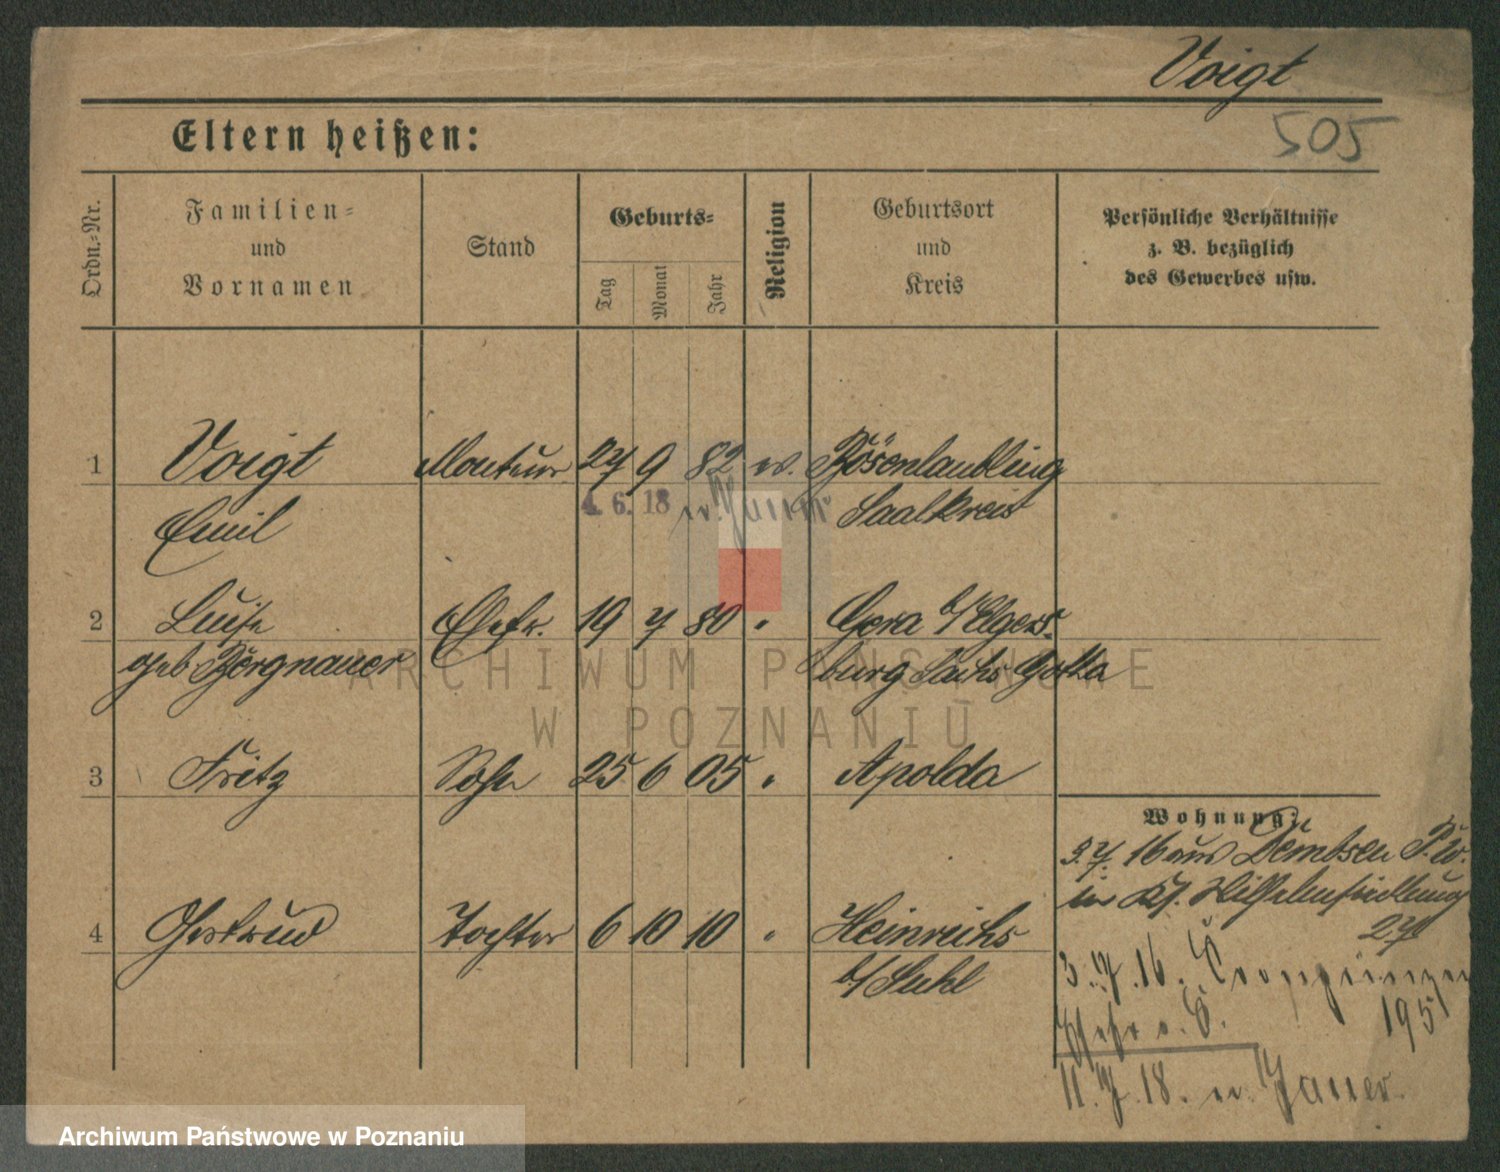 Voigt
505
Eltern heißen:
Ordn.-Nr.
Familien-
und
Vornamen
Stand
Geburts-
Tag
Monat
Jahr
Religion
Geburtsort
und
Kreis
Persönliche Verhältnisse
z. B. bezüglich
des Gewerbes usw.
1 Voigt Monteur 27 9 82 ev. Bösenlaubling
4. 6. 18 n. Jauer
Emil Saalkreis
2 Luise Ehefr. 19 7 80 " Gera b/Elgers-
geb Börgnauer burg Sachs Gotha
3 Fritz Sohn 25 6 05 " Apolda
4 Gertrud Tochter 6 10 10 " Heinrichs
b/Suhl
Wohnung:
3.7. 16 aus Dembsen P. W.
in Wilhelmsiedlung
27
3.7.16. Kronprinzen
195
11.7.18. n. Jauer.
ARCHIWUM PAŃSTWOWE
W POZNANIU
Archiwum Państwowe w Poznaniu